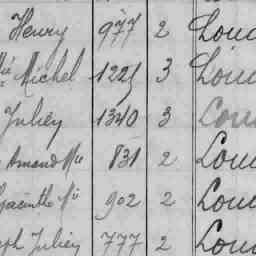 Henry 977 2 Lou
Mie Michel 1225 3 Lou
Juliey 1340 3 Lou
Amand Mie 831 2 Lou
Hyacinthe Mie 902 2 Lou
Joseph Juliey 777 2 Lou